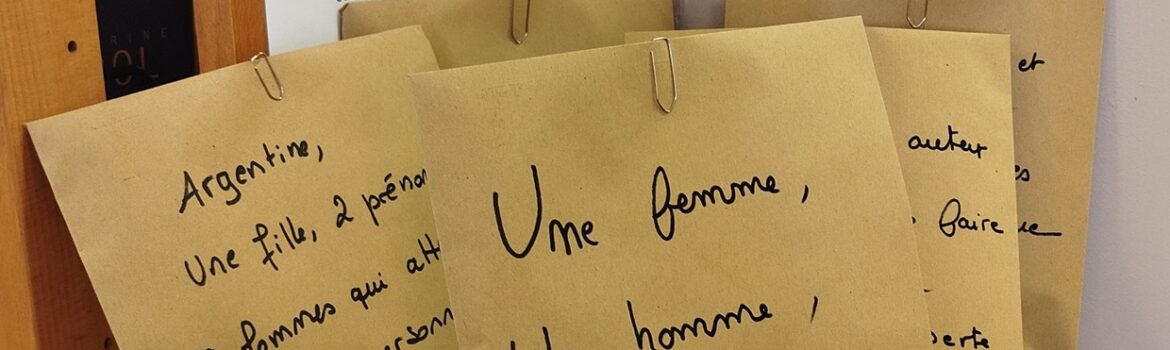 RINE
Argentine,
Une fille, 2 préno
femmes qui att
ersonn
Une femme,
homme,
auteur
faire
et
es
ue
erte